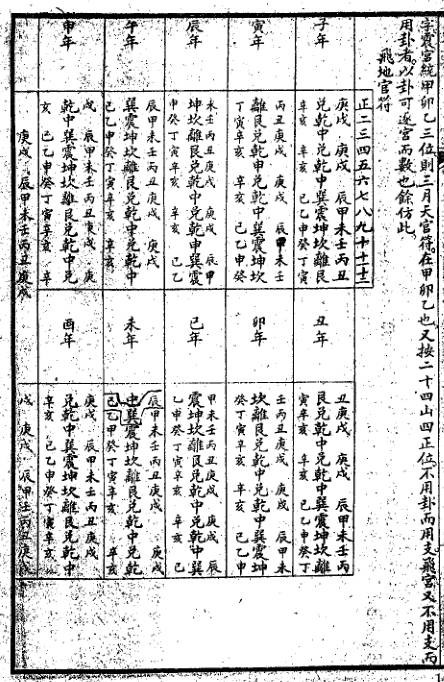 字震宮統甲卯乙三位則三月天官符在甲卯乙也又按二十四山四正位不用卦而用支飛宮又不用支而
用卦者以卦可逐宮而數也餘仿此
飛地官符
正二三四五六七八九十十十
子年
庚戌 庚戌 辰甲未壬丙丑
兌乾中兌乾中巽震坤坎離艮
辛亥 辛亥 己乙申癸丁寅
寅年
丙丑庚戌 庚戌 辰甲未壬
離艮兌乾中兌乾中巽震坤坎
丁寅辛亥 辛亥 己乙申癸
辰年
未壬丙丑庚戌 庚戌 辰甲
坤坎離艮兌乾中兌乾中巽震
申癸丁寅辛亥 辛亥 己乙
午年
辰甲未壬丙丑庚戌 庚戌
巽震坤坎離艮兌乾中兌乾中
己乙申癸丁寅辛亥 辛亥
申年
戌 辰甲未壬丙丑庚戌 庚
乾中巽震坤坎離艮兌乾中兌
亥 己乙申癸丁寅辛亥 辛
庚戌 辰甲未壬丙丑庚戌
丑年
丑庚戌 庚戌 辰甲未壬丙
艮兌乾中兌乾中巽震坤坎離
寅辛亥 辛亥 己乙申癸丁
卯年
壬丙丑庚戌 庚戌 辰甲未
坎離艮兌乾中兌乾中巽震坤
癸丁寅辛亥 辛亥 己乙申
巳年
甲未壬丙丑庚戌 庚戌 辰
震坤坎離艮兌乾中兌乾中巽
乙申癸丁寅辛亥 辛亥 己
未年
辰甲未壬丙丑庚戌 庚戌
中巽震坤坎離艮兌乾中兌乾中
己乙申癸丁寅辛亥 辛亥
酉年
庚戌 辰甲未壬丙丑庚戌
兌乾中巽震坤坎離艮兌乾中
辛亥 己乙申癸丁寅辛亥
戌 庚戌 辰甲壬丙丑庚戌